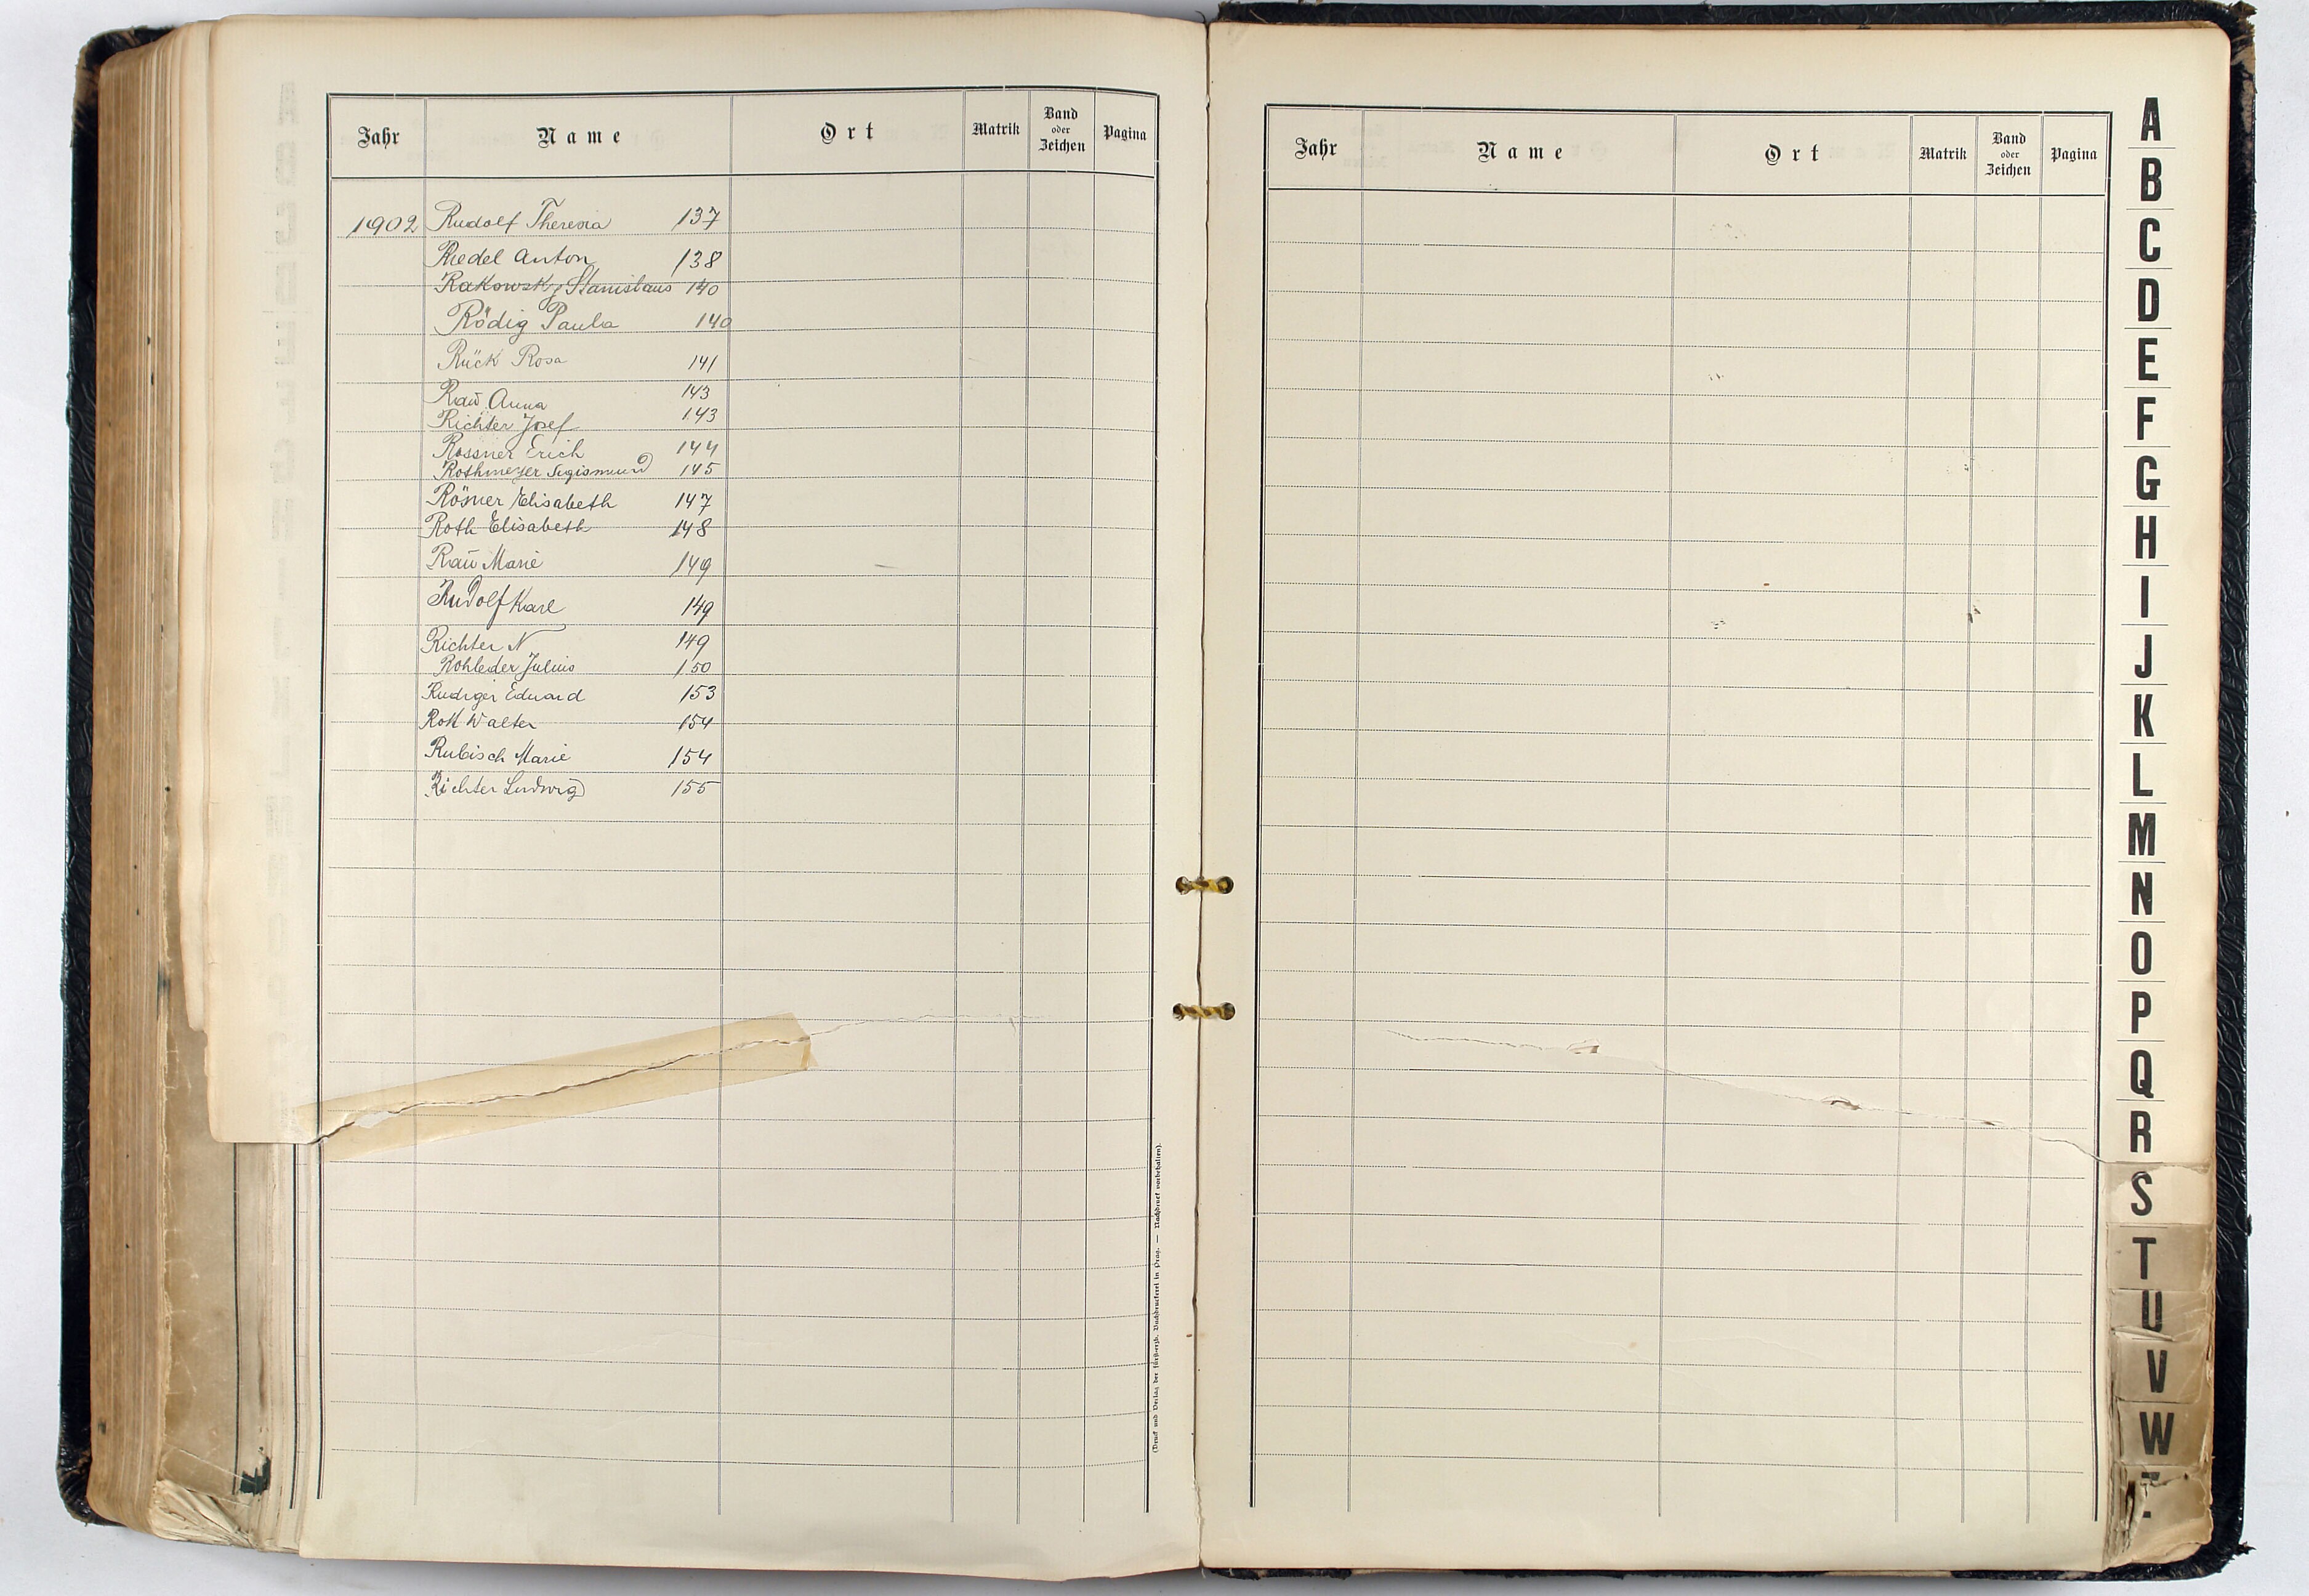 Jahr Name Ort Matrik Band oder Zeichen Pagina
1902 Rudolf Theresia 137
Riedel Anton 138
Rakowsky Stanislaus 140
Rödig Paula 140
Rück Rosa 141
Raŭ Anna 143
Richter Josef 143
Rossner Erich 144
Rothmeyer Sigismund 145
Rösner Elisabeth 147
Roth Elisabeth 148
Raŭ Marie 149
Rudolf Karl 149
Richter N 149
Rohleder Julius 150
Rudiger Eduard 153
Walter 154
Rubisch Marie 154
Richter Ludwig 155
(Druck und Verlag der fürst-erzb. Buchdruckerei in Prag. — Nachdruck vorbehalten).
Jahr Name Ort Matrik Band oder Zeichen Pagina
A
B
C
D
E
F
G
H
I
J
K
L
M
N
O
P
Q
R
S
T
U
V
W